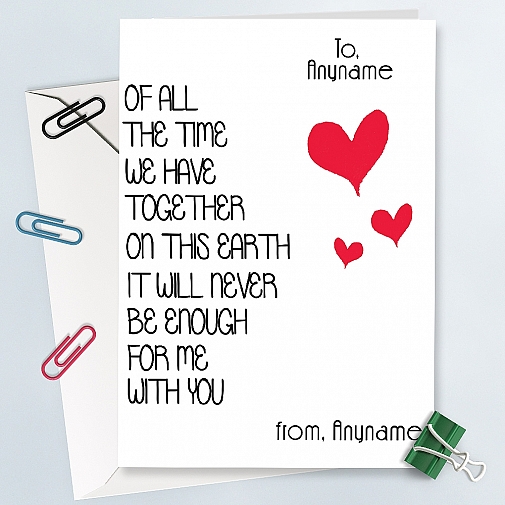 To,
Anyname
OF ALL
THE TIME
WE HAVE
TOGETHER
ON THIS EARTH
IT WILL NEVER
BE ENOUGH
FOR ME
WITH YOU
from, Anyname